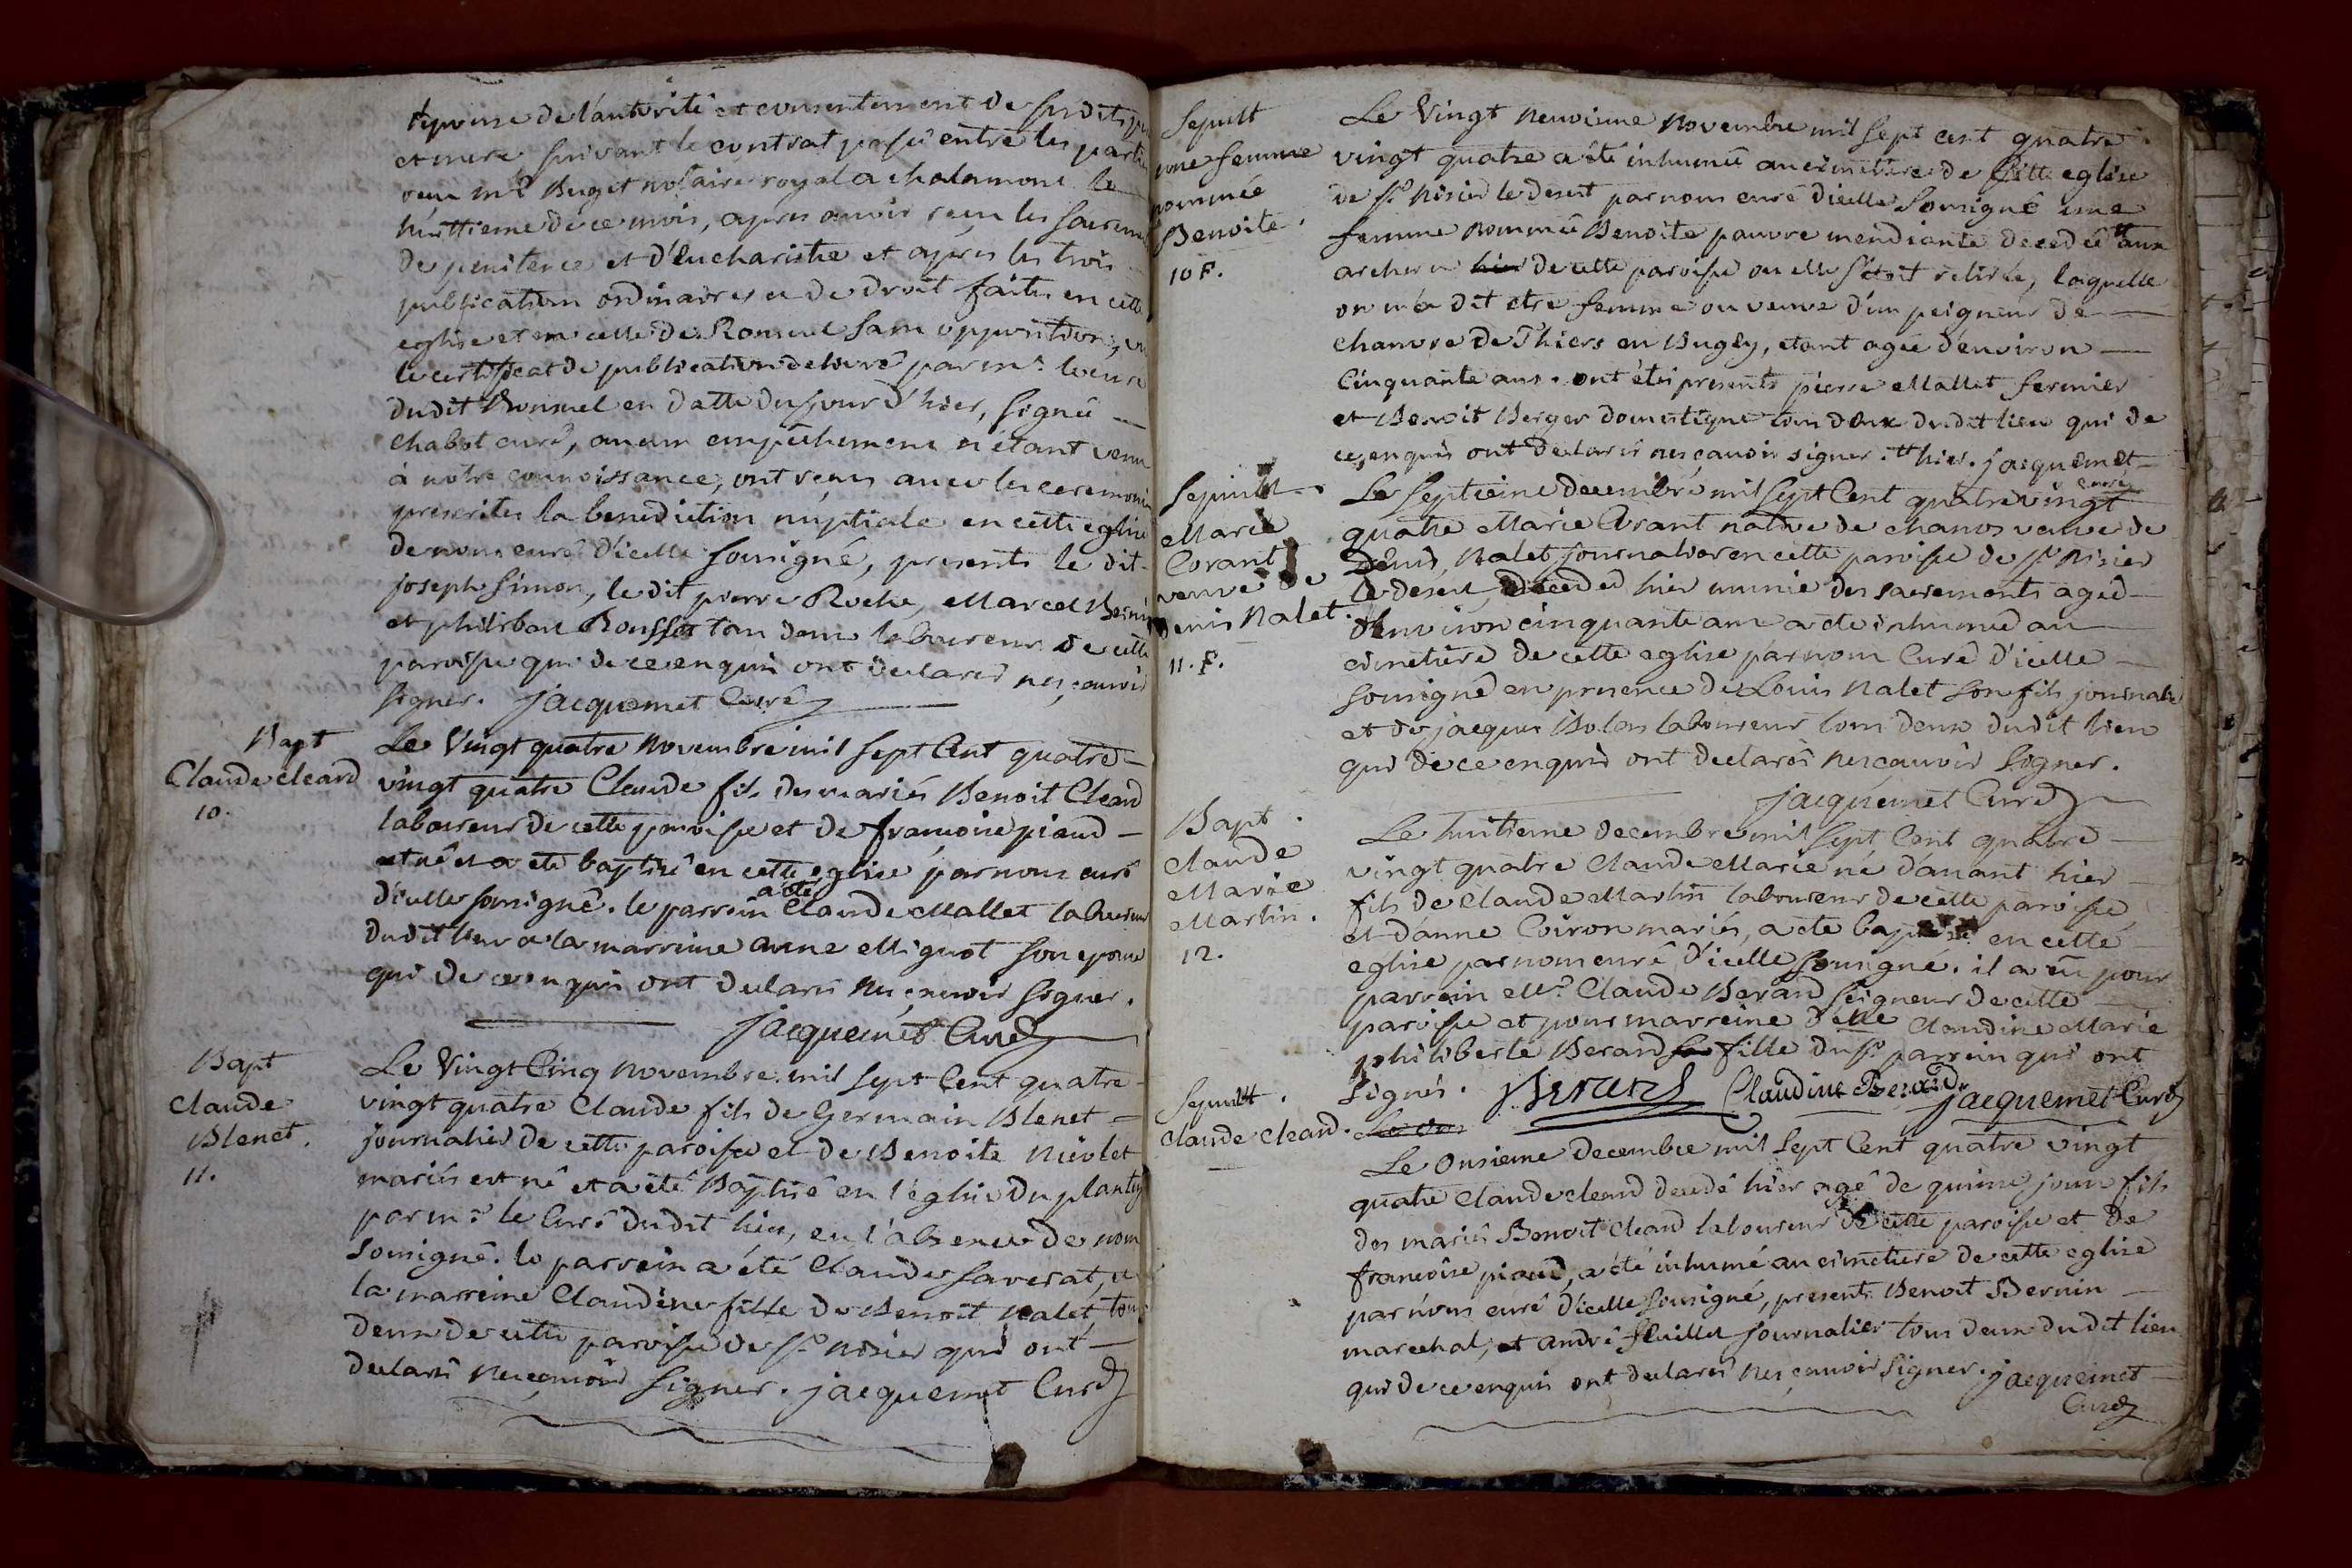 épouse de l'autorité et consentement de susdits
et mere suivant le contrat passé entre les parties
reçu mᵉ Buget notaire royal a chalamont le
huittieme de ce mois, apres avoir reçu les sacremens
de penitence et d'Eucharistie et après les trois
publication ordinaires et de droit faites en cette
eglise et en celle de Ronsuel sans opposition, vu
le certificat de publication delivré par mʳ le curé
dudit Ronsuel en datte du jour d'hier, signé
chabot curé, aucun empêchement n'étant venu
à notre connoissance, ont reçus avec les ceremonies
prescrites la benediction nuptiale en cette eglise
de nous curé d'icelle sousigné, presents le dit
joseph Simon, le dit pierre Roche, Marcel Bernin
et philibert Rousset tous deux laboureurs de cette
paroisse qui de ce enquis ont declarés ne sçavoir
signer. jacquemet Curé
Bapt
Claude cleard
10.
Le Vingt quatre Novembre mil sept Cent quatre
vingt quatre Claude fils des mariés Benoit Cleard
laboureur de cette paroisse et de francoise piaud
est né et a eté baptisé en cette eglise par nous curé
d'icelle sousigné. le parrein a été Claude Mallet laboureur
dudit lieu et la marreine anne Mignot son epouse
qui de ce enquis ont declarés ne sçavoir signer.
jacquemet Curé
Bapt
Claude
Blenet.
11.
Le Vingt Cinq Novembre mil sept Cent quatre
vingt quatre Claude fils de Germain Blenet
journalier de cette paroisse et de Benoite Nicolet
mariés est né et a été Baptisé en l'eglise du plantey
par mʳ le Curé dudit lieu, en l'absence de nous
sousigné. le parrein a été Claude Saverat, et
la marreine Claudine fille de Benoit Nalet, tous
deux de cette paroisse de Sᵗ Nisier qui ont
declaré ne sçavoir signer. jacquemet Curé
Sepult
une femme
nommée
Benoite
10 F.
Le Vingt neuvieme Novembre mil sept cent quatre
vingt quatre a été inhumée au cimetiere de cette eglise
de Sᵗ Nisier le desert par nous curé d'icelle sousigné une
femme nommée Benoite pauvre mendiante decedée aux
archers hier de cette paroisse ou elle s'étoit retirée, laquelle
on m'a dit etre femme ou veuve d'un peigneur de
chanvre de Thiers en Bugey, etant agée d'environ
Cinquante ans. ont étés presents pierre Mallet fermier
et Benoit Berger domestique tous deux dudit lieu qui de
ce enquis ont declarés ne sçavoir signer. hier. jacquemet
curé
Sepult
Marie
Corant
veuve de
Denis Nalet.
11. F.
Le Septieme decembre mil sept Cent quatre vingt
quatre Marie Corant native de chanos veuve de
Denis Nalet journalier en cette paroisse de Sᵗ Nisier
le desert, decedée hier munie des sacrements agée
d'environ cinquante ans a eté inhumée au
cimetiere de cette eglise par nous Curé d'icelle
sousigné en presence de Louis Nalet son fils journalier
et de jacques Bolon laboureur tous deux dudit lieu
qui de ce enquis ont declarés ne sçavoir signer.
jacquemet Curé
Bapt.
Claude
Marie
Martin.
12.
Le huitieme decembre mil sept Cent quatre
vingt quatre Claude Marie né d'avant hier
fils de Claude Martin laboureur de cette paroisse
et d'anne Coiron mariés, a eté baptisé en cette
eglise par nous curé d'icelle sousigné. il a eu pour
parrein Mʳ Claude Berard seigneur de cette
paroisse et pour marreine delle Claudine Marie
philiberte Berard fille du sʳ parrein qui ont
signés. Berard Claudine Berard jacquemet Curé
Sepult.
Claude Cleard.
Le Onsieme decembre mil sept Cent quatre vingt
quatre Claude cleard decedé hier agé de quinze jours fils
des mariés Benoit Cleard laboureur de cette paroisse et de
francoise piaud, a été inhumé au cimetiere de cette eglise
par nous curé d'icelle sousigné, presents Benoit Bernin
marechal, et André feuillet journalier tous deux dudit lieu
qui de ce enquis ont declarés ne sçavoir signer. jacquemet
Curé